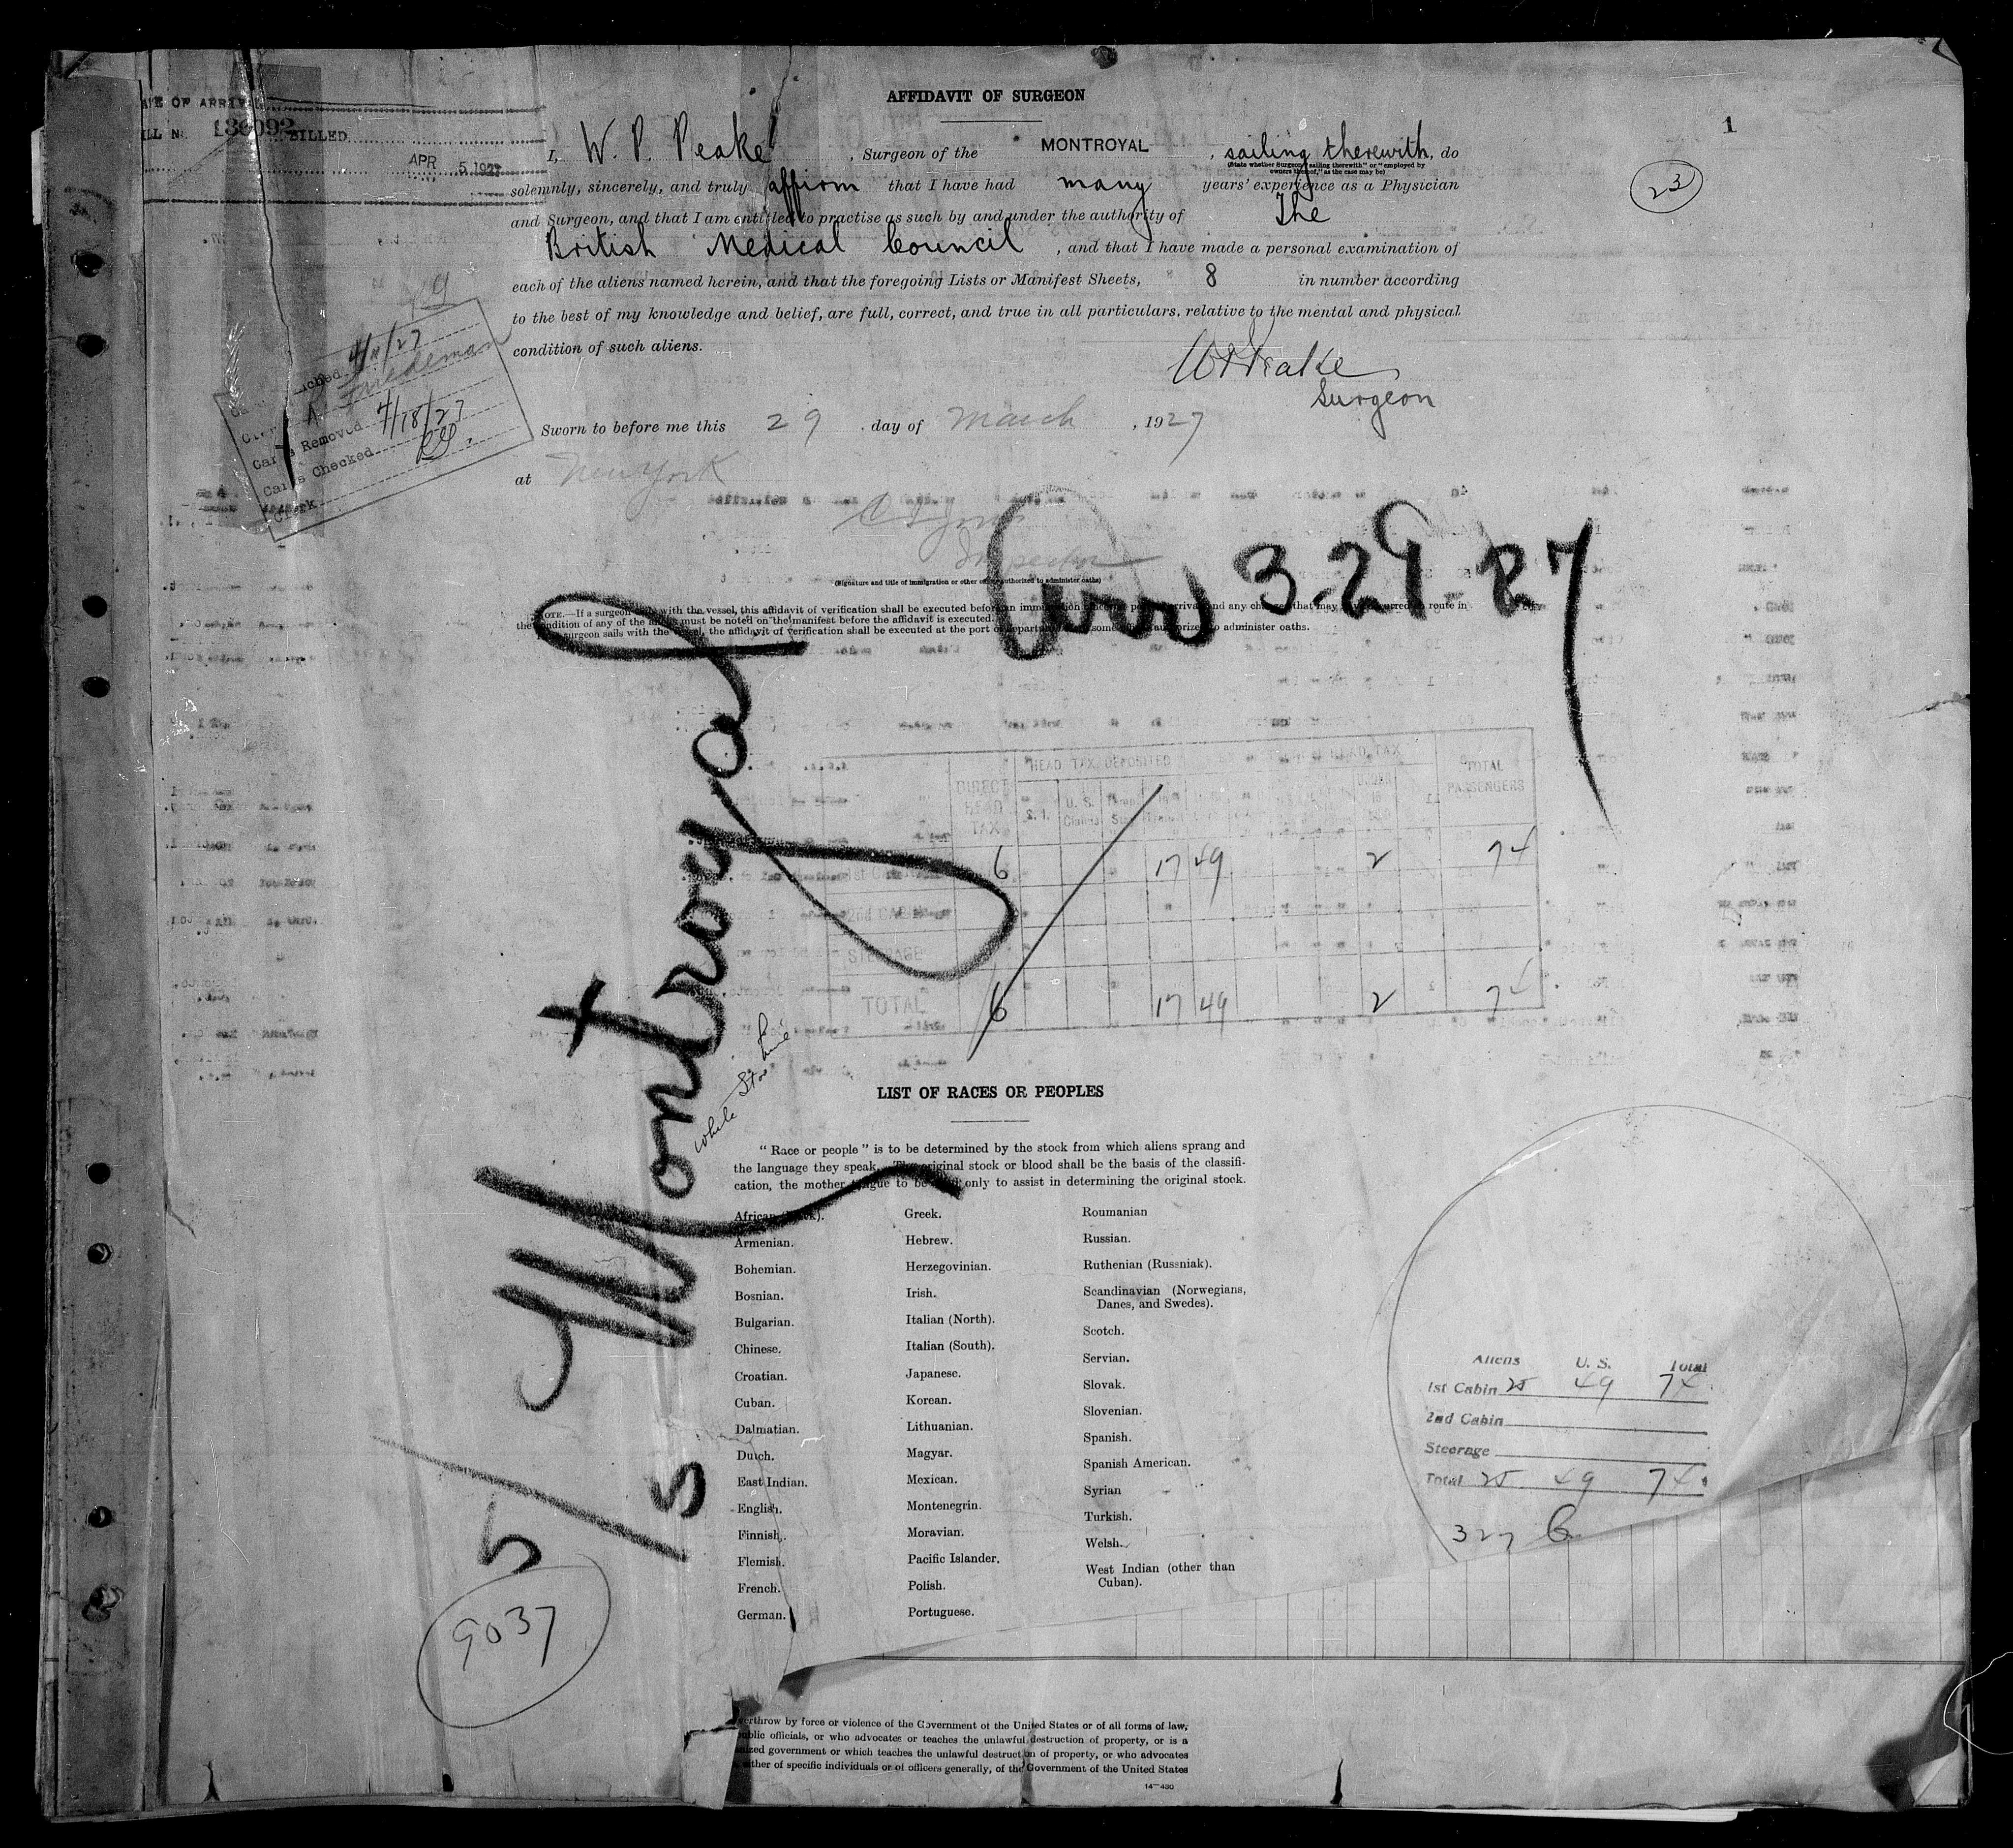 AFFIDAVIT OF SURGEON
1
23
BILL No. 136092 BILLED
APR 5 1927
I, W. P. Peake, Surgeon of the MONTROYAL, sailing therewith, do
(State whether Surgeon "sailing therewith" or "employed by
owners thereof," as the case may be)
solemnly, sincerely, and truly affirm that I have had many years' experience as a Physician
and Surgeon, and that I am entitled to practise as such by and under the authority of The
British Medical Council, and that I have made a personal examination of
each of the aliens named herein, and that the foregoing Lists or Manifest Sheets, 8 in number according
to the best of my knowledge and belief, are full, correct, and true in all particulars, relative to the mental and physical
condition of such aliens.
W P Peake
Surgeon
4/11/27
Friedeman
Cards Removed 4/18/27
Cards Checked
Clerk
Sworn to before me this 29 day of March, 1927
at New York
Inspector
(Signature and title of immigration or other officer authorized to administer oaths)
Arr 3-29-27
NOTE.—If a surgeon sails with the vessel, this affidavit of verification shall be executed before an immigration
the condition of any of the aliens must be noted on the manifest before the affidavit is executed.
surgeon sails with the vessel, the affidavit of verification shall be executed at the port of departure some authorized to administer oaths.
S/S Montroyal
White Star Line
HEAD TAX DEPOSITED
DIRECT HEAD TAX
TOTAL PASSENGERS
6 17 49 2 74
2nd CABIN
STEERAGE
TOTAL 6 17 49 2 74
LIST OF RACES OR PEOPLES
"Race or people" is to be determined by the stock from which aliens sprang and
the language they speak. The original stock or blood shall be the basis of the classifi-
cation, the mother tongue to be used only to assist in determining the original stock.
African (black).
Armenian.
Bohemian.
Bosnian.
Bulgarian.
Chinese.
Croatian.
Cuban.
Dalmatian.
Dutch.
East Indian.
English.
Finnish.
Flemish.
French.
German.
Greek.
Hebrew.
Herzegovinian.
Irish.
Italian (North).
Italian (South).
Japanese.
Korean.
Lithuanian.
Magyar.
Mexican.
Montenegrin.
Moravian.
Pacific Islander.
Polish.
Portuguese.
Roumanian
Russian.
Ruthenian (Russniak).
Scandinavian (Norwegians,
Danes, and Swedes).
Scotch.
Servian.
Slovak.
Slovenian.
Spanish.
Spanish American.
Syrian
Turkish.
Welsh.
West Indian (other than
Cuban).
Aliens U. S. Total
1st Cabin 25 49 74
2nd Cabin
Steerage
Total 25 49 74
327
9037
verthrow by force or violence of the Government of the United States or of all forms of law,
public officials, or who advocates or teaches the unlawful destruction of property, or is a
nized government or which teaches the unlawful destruction of property, or who advocates
either of specific individuals or of officers generally, of the Government of the United States
14—430